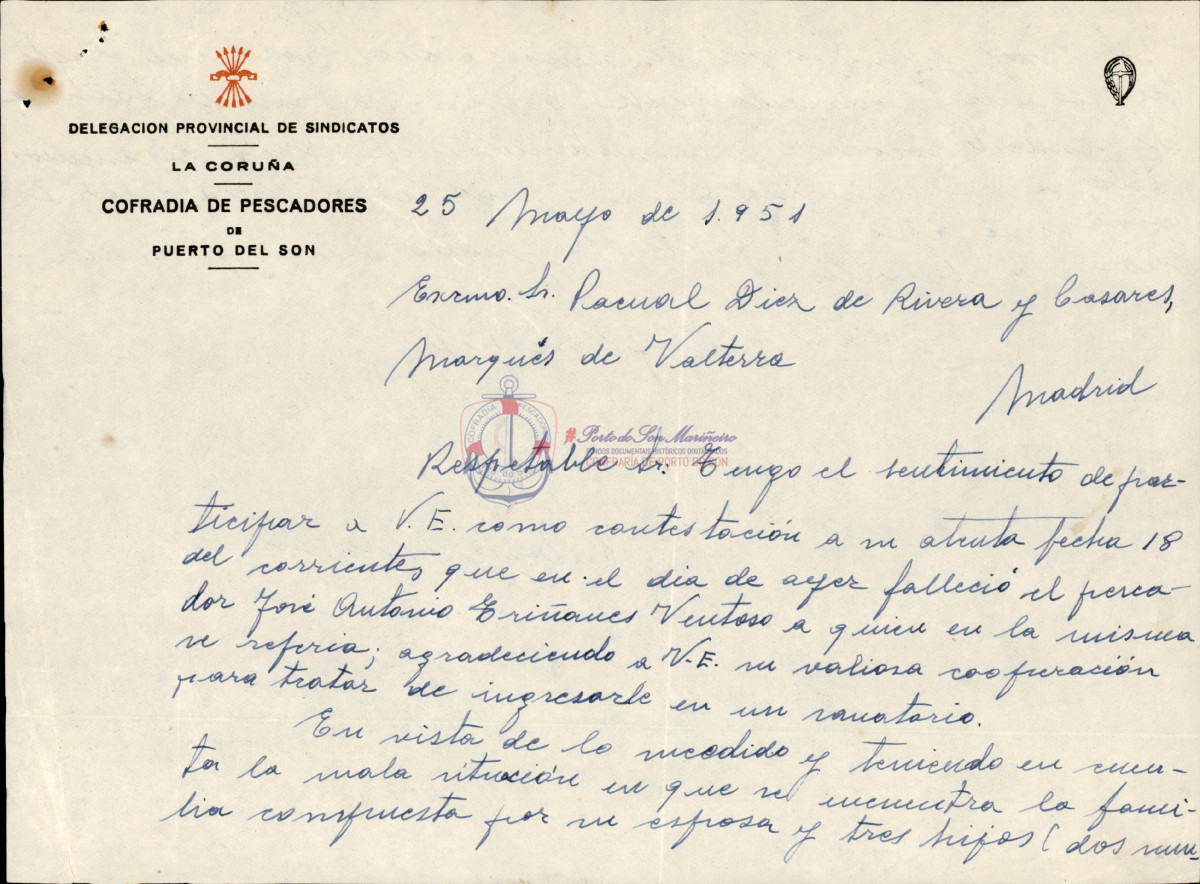 DELEGACION PROVINCIAL DE SINDICATOS
LA CORUÑA
COFRADIA DE PESCADORES
DE
PUERTO DEL SON
25 Mayo de 1.951
Excmo. Sr. Pacual Diez de Rivera y Casares,
Marqués de Valterra
Madrid
COFRADIA PESCADORES
#Porto do Son Mariñeiro
FONDOS DOCUMENTAIS HISTÓRICOS DIXITALIZADOS
CONFRARÍA DE PORTO DO SON
Respetable Sr. Tengo el sentimiento de par-
ticipar a V.E. como contestación a su atenta fecha 18
del corriente, que en el dia de ayer falleció el pesca-
dor José Antonio Triñanes Ventoso a quien en la misma
se referia; agradeciendo a V.E. su valiosa cooperación
para tratar de ingresarle en un sanatorio.
En vista de lo sucedido y teniendo en cuen-
ta la mala situación en que se encuentra la fami-
lia compuesta por su esposa y tres hijos (dos